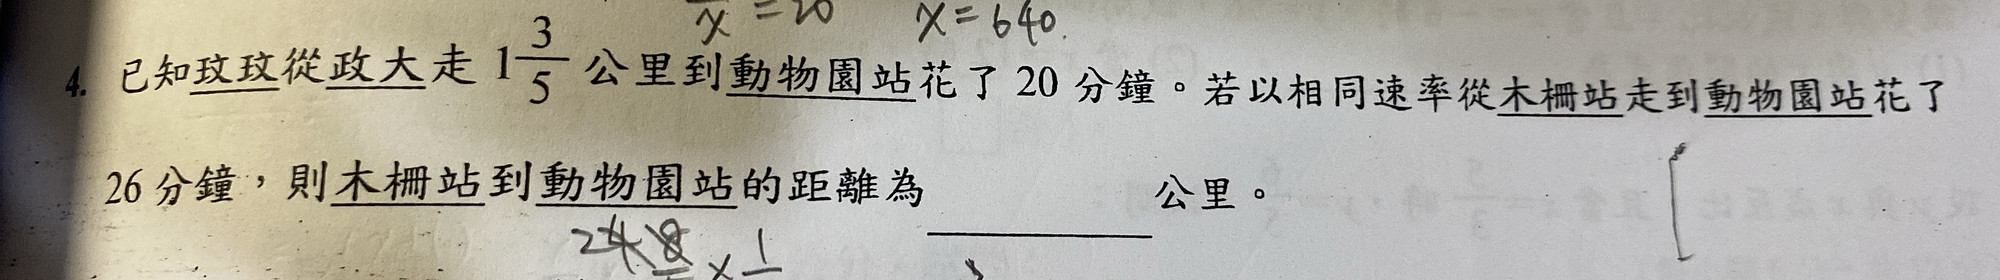 x = 20 x = 640.
4. 已知玟玟從政大走 1 3/5 公里到動物園站花了 20 分鐘。若以相同速率從木柵站走到動物園站花了
26 分鐘，則木柵站到動物園站的距離為 公里。